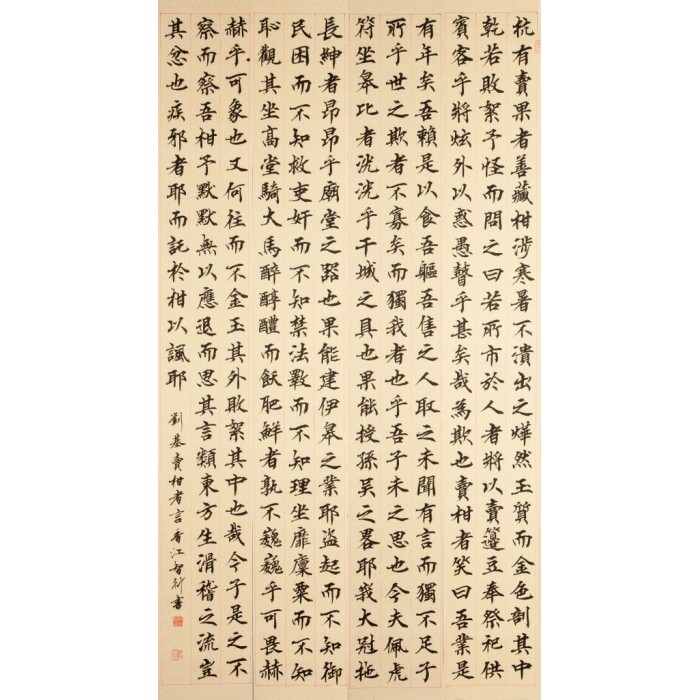 杭有賣果者善藏柑涉寒暑不潰出之燁然玉質而金色剖其中
乾若敗絮予怪而問之曰若所市於人者將以實籩豆奉祭祀供
賓客乎將炫外以惑愚瞽乎甚矣哉為欺也賣柑者笑曰吾業是
有年矣吾賴是以食吾軀吾售之人取之未聞有言而獨不足子
所乎世之欺者不寡矣而獨我者也乎吾子未之思也今夫佩虎
符坐皋比者洸洸乎干城之具也果能授孫吳之畧耶峩大冠拖
長紳者昂昂乎廟堂之器也果能建伊皋之業耶盜起而不知御
民困而不知救吏奸而不知禁法斁而不知理坐靡廩粟而不知
恥觀其坐高堂騎大馬醉醇醴而飫肥鮮者孰不巍巍乎可畏赫
赫乎可象也又何往而不金玉其外敗絮其中也哉今子是之不
察而察吾柑予默默無以應退而思其言類東方生滑稽之流豈
其忿也疾邪者耶而託於柑以諷耶
劉基賣柑者言香江智衍書